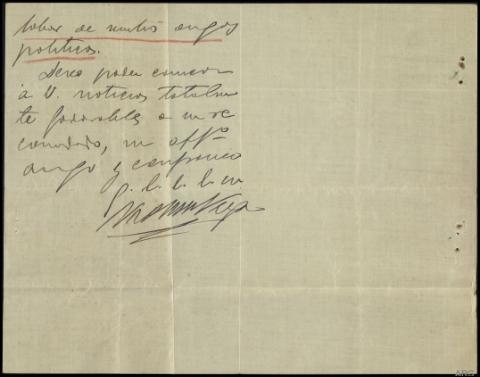 labor de nuestros amigos
políticos.
Deseo poder comuni
á V. noticias totalmen
te favorables a su re
comendado, su aff.º
amigo y compañero
q. l. b. l. m.
ARG